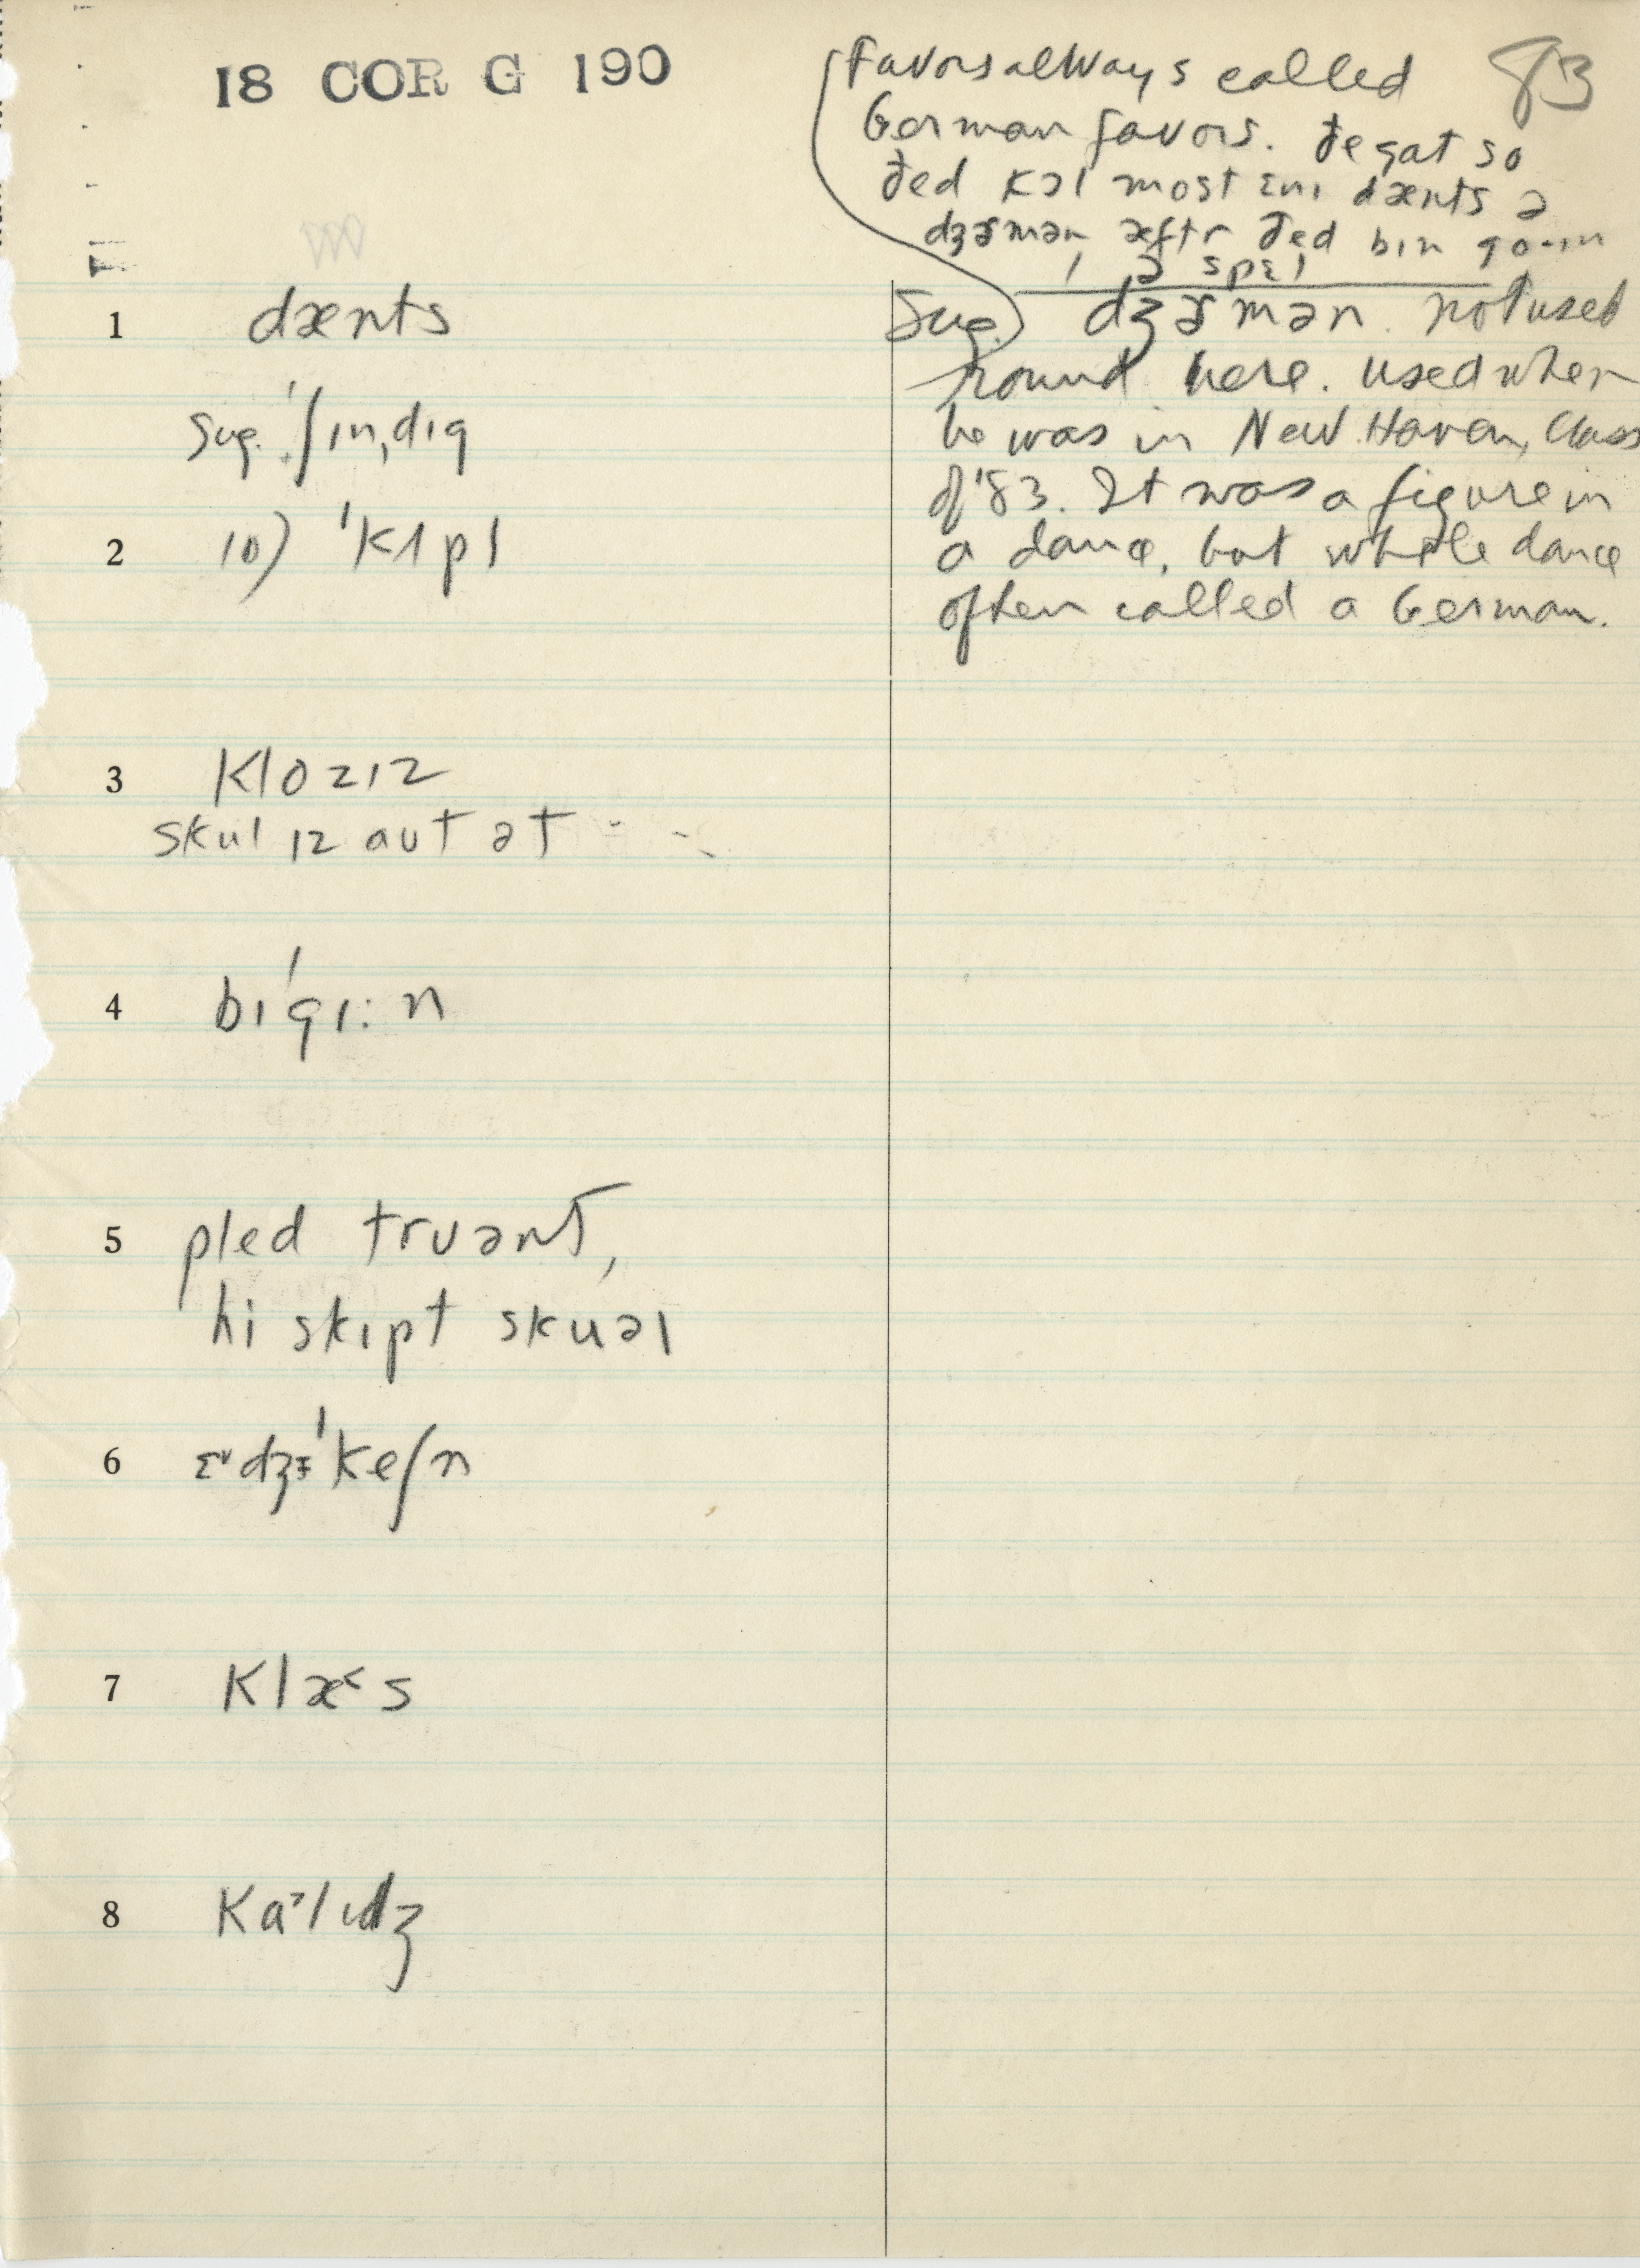 18 COR G 190
83
Favors always called
German favors. ðe gat so
ðed kɔl most ɛnɪ dænts ə
dʒɝmən æftr ðed bɪn go-ɪn
ə spɛl
1 dænts
sug. ˈʃɪnˌdɪg
2 10) ˈkɪpl
Sug. dʒɝmən. not used
round here. used when
he was in New Haven, Class
of '83. It was a figure in
a dance, but whole dance
often called a German.
3 klozɪz
skul ɪz aut ət - -
4 bɪˈgɪ:n
5 pled truənt,
hi skɪpt skuəl
6 ɛ˅dʒɨˈkeʃn
7 klæ˂s
8 kɑ˃lɪdʒ